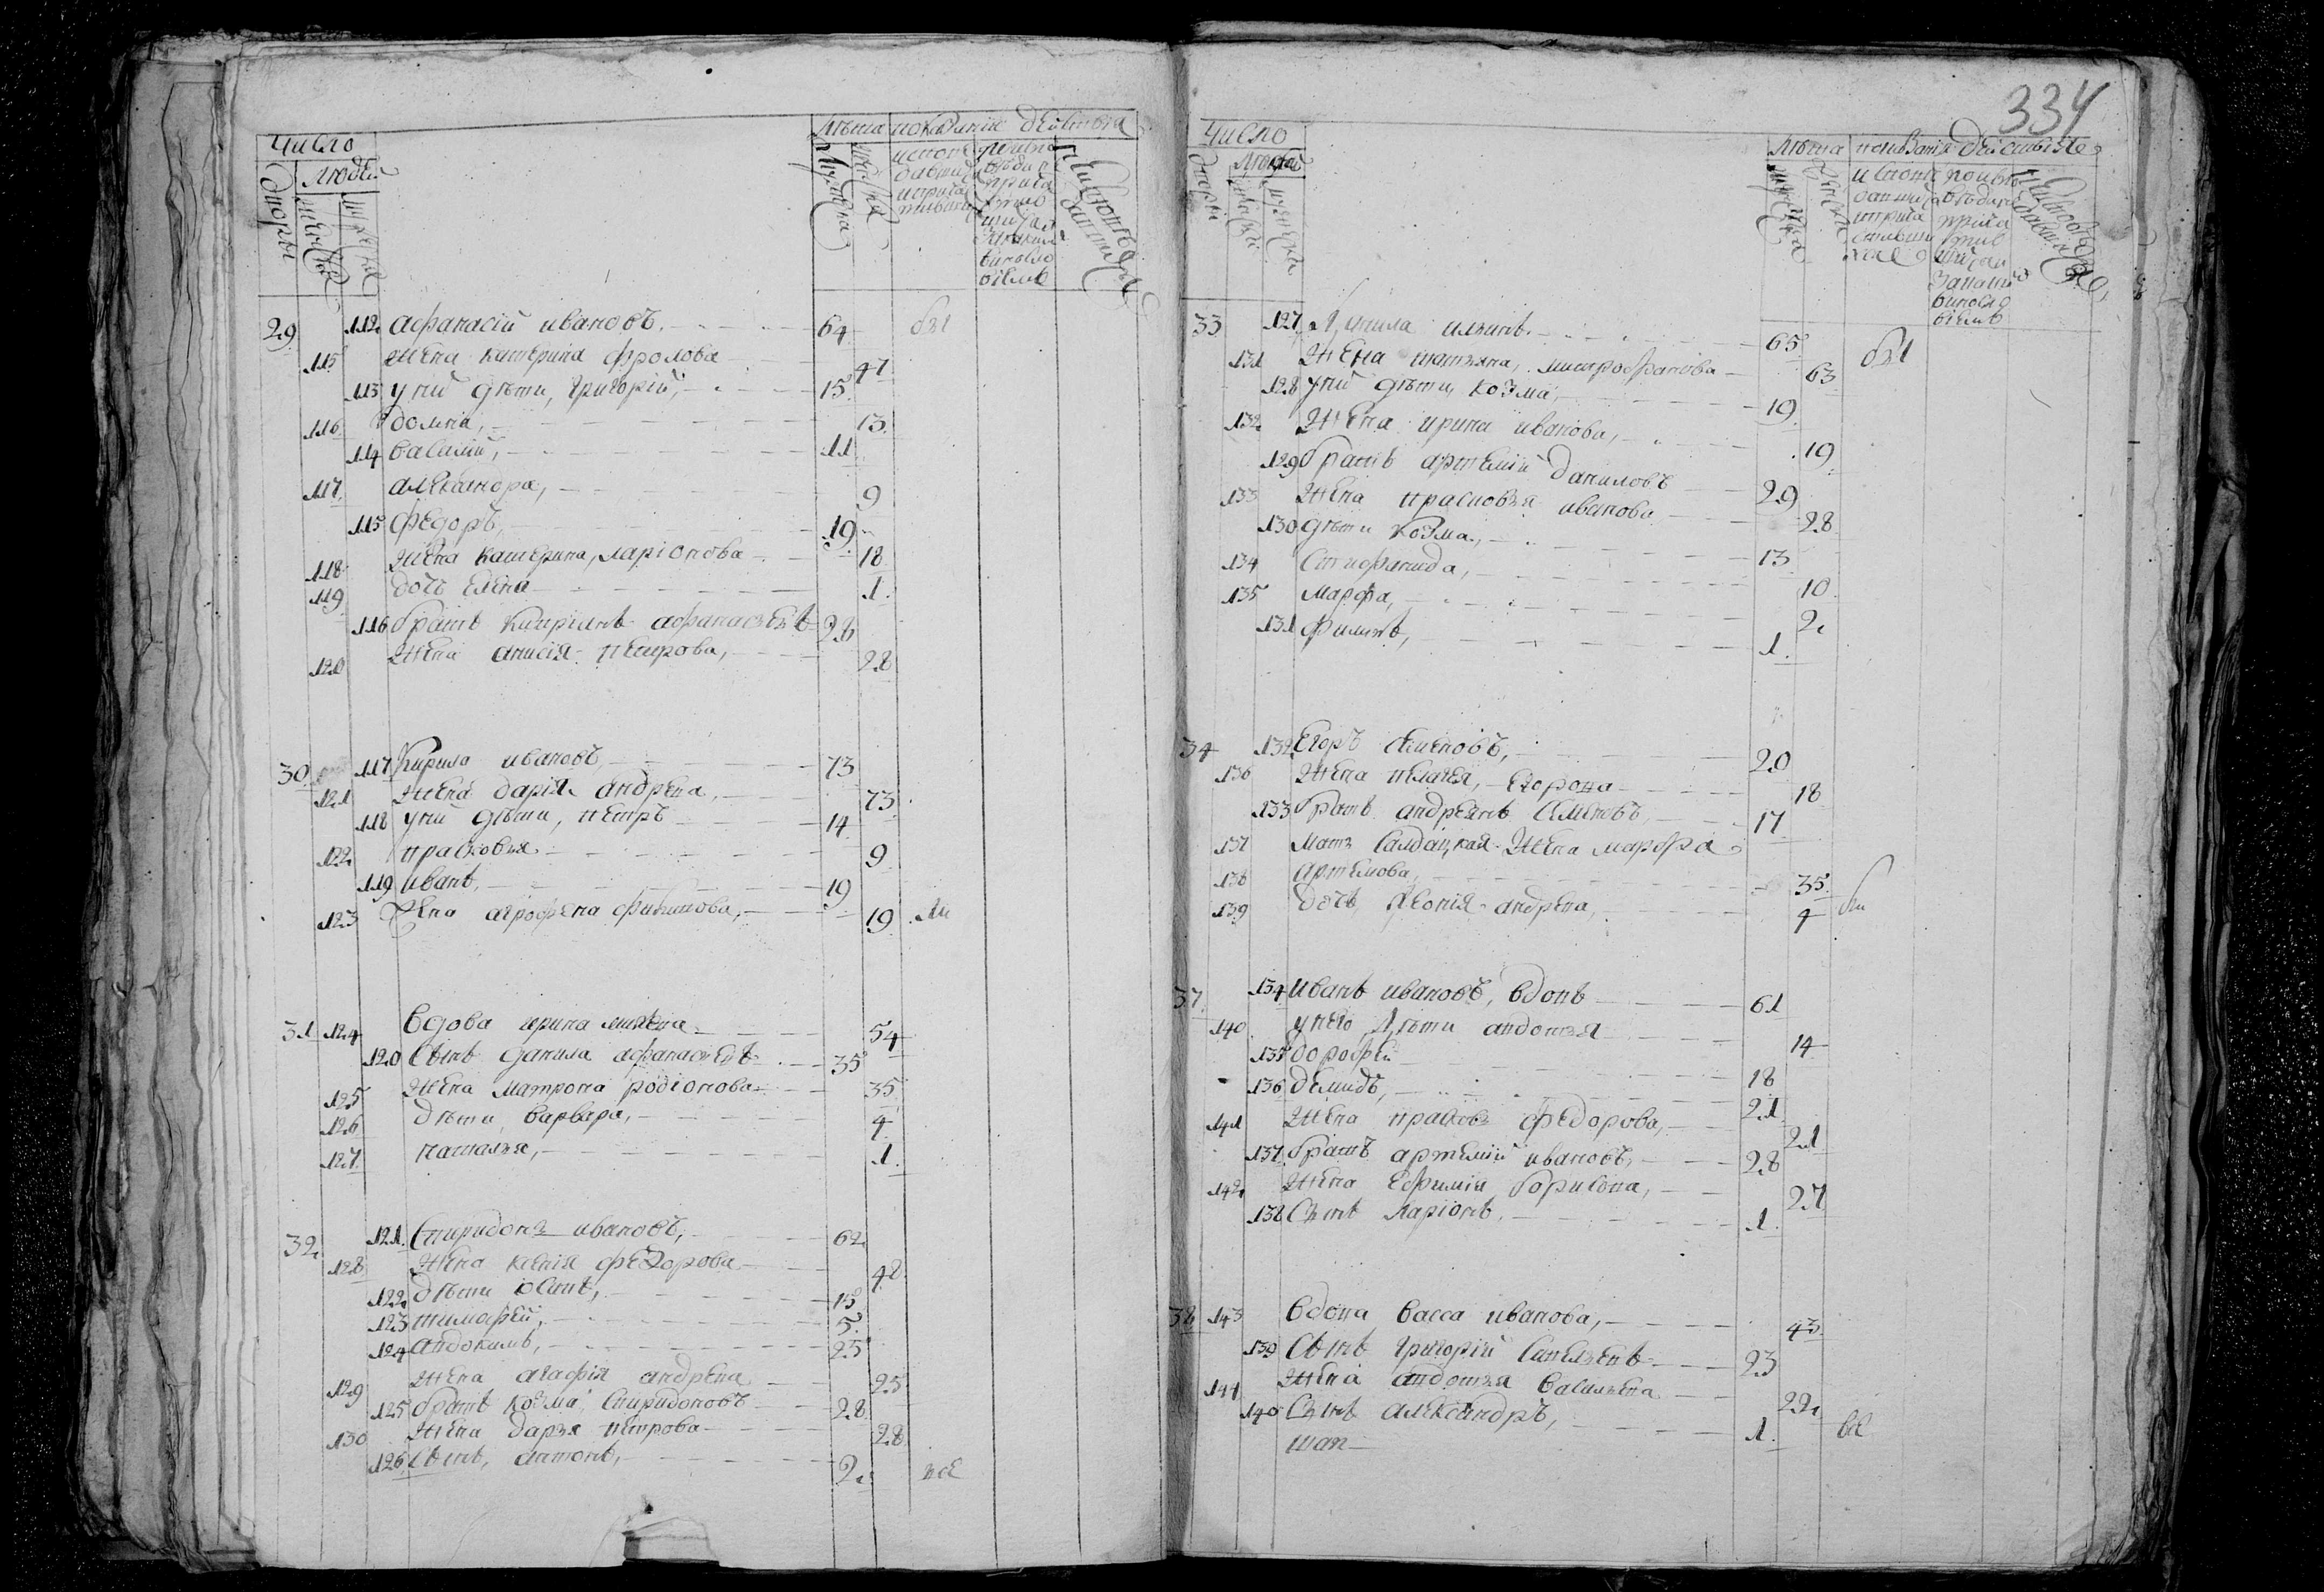 Число
Людей
Лѣта показанiя дѣйствiя
29 112 афанасiй ивановъ, 64 бы
115 жена катерина фролова 47
113 у ний дѣти, григорiй, 15
116 домна, 13
114 василiй, 11
117 александра, 9
115 федоръ, 19
118 жена катерина, ларiонова 18
119 дочь елена 1
116 братъ кипрiянъ афанасьевъ 26
120 жена анисiя петрова, 28
30 117 Кирила ивановъ, 73
121 жена дарiя андрева, 73
118 у ний дѣти, петръ 14
122 прасковья 9
119 иванъ, 19
123 жена агрофена филипова, 19
31 124 вдова ирина 54
120 Сынъ данила афанасьевъ 35
125 жена матрона родiонова 35
126 дѣти варвара, 4
127 наталья, 1
32 121 Спиридонъ ивановъ, 62
128 жена ксенiя федорова 48
122 дѣти осипъ, 15
123 тимофей, 5
124 авдокимъ, 25
129 жена агафiя андрева 25
125 братъ козма, Спиридоновъ 28
130 жена дарья петрова 28
126 Сынъ, антонъ, 2 все
334
Число
Людей
Лѣта показанiя дѣйствiя
33 127 65 бы
131 жена татьяна, митрофанова 63
128 у ний дѣти, козма, 19
132 жена ирина иванова, 19
129 братъ артемiй даниловъ 29
133 жена прасковья иванова 28
130 дѣти козма, 13
134 Стефанида, 10
135 марфа, 2
131 филипъ, 1
34 132 Егоръ Семеновъ, 20
136 жена пелагея, егорова 18
133 братъ андреянъ Семеновъ, 17
137 мать Салдацкая жена марфа
138 артемова, 35
139 дочь андрева, 4
37 134 иванъ ивановъ, вдовъ 61
140 у него дѣти авдотья 14
135 дорофей 18
136 демидъ, 21
141 жена прасковья федорова, 21
137 братъ артемiй ивановъ, 28
142 жена ефимiя борисова, 27
138 Сынъ ларiонъ, 1
38 143 вдова васса иванова, 43
139 Сынъ григорiй Савельевъ 23
144 жена авдотья васильева 22
140 Сынъ александръ, 1 все